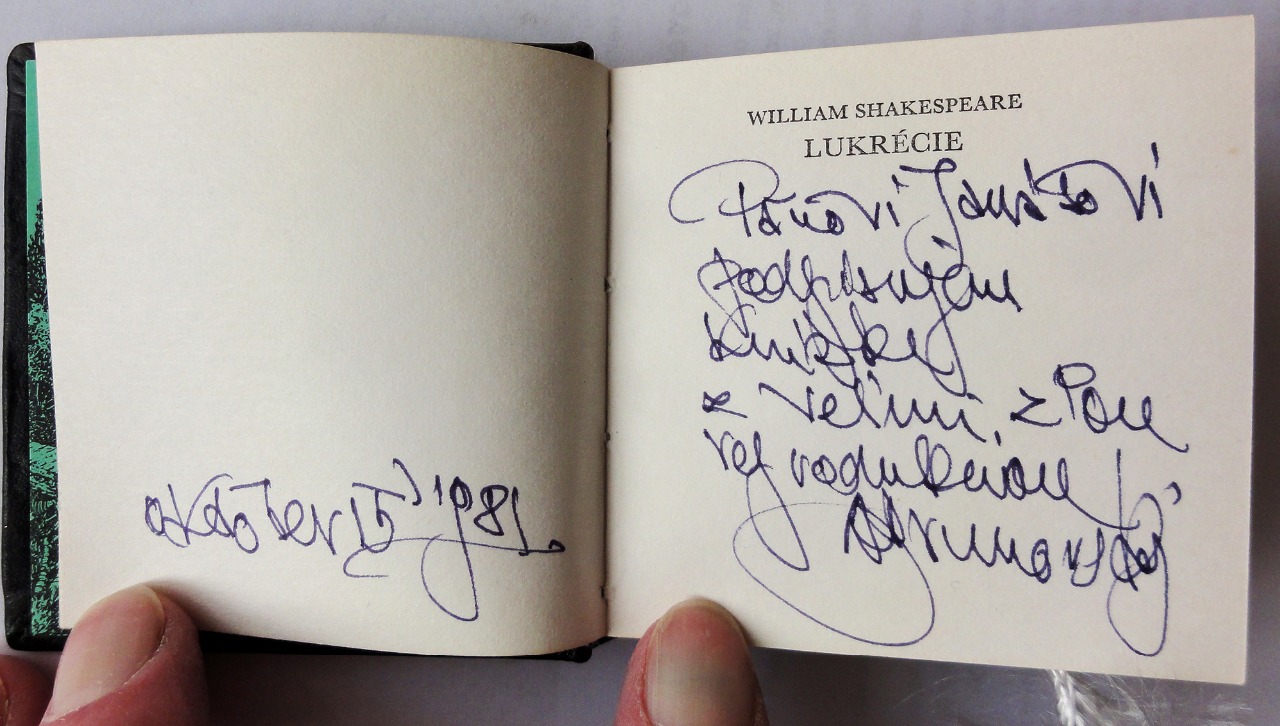 október 1981
WILLIAM SHAKESPEARE
LUKRÉCIE
Pánovi Janátkovi
podpisujem
knižky
s veľmi zlou
reprodukciou!
A Brunovský